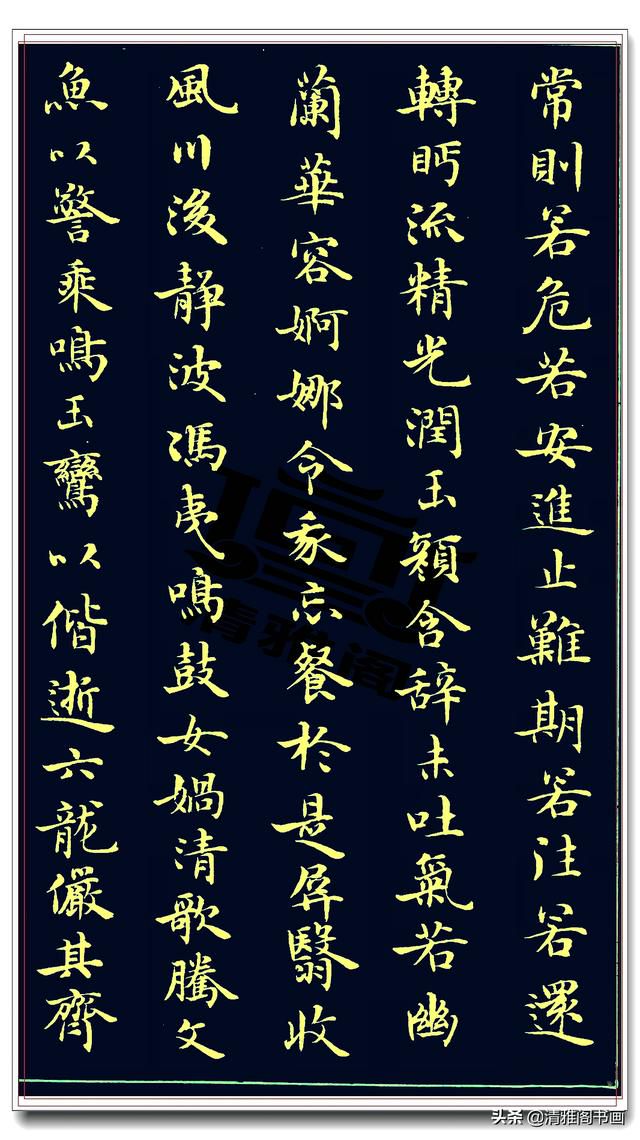 常則若危若安進止難期若注若還
轉眄流精光潤玉顏含辭未吐氣若幽
蘭華容婀娜令我忘餐於是屏翳收
風川後靜波馮夷鳴鼓女媧清歌騰文
魚以警乘鳴玉鸞以偕逝六龍儼其齊
清雅阁
头条 @清雅阁书画